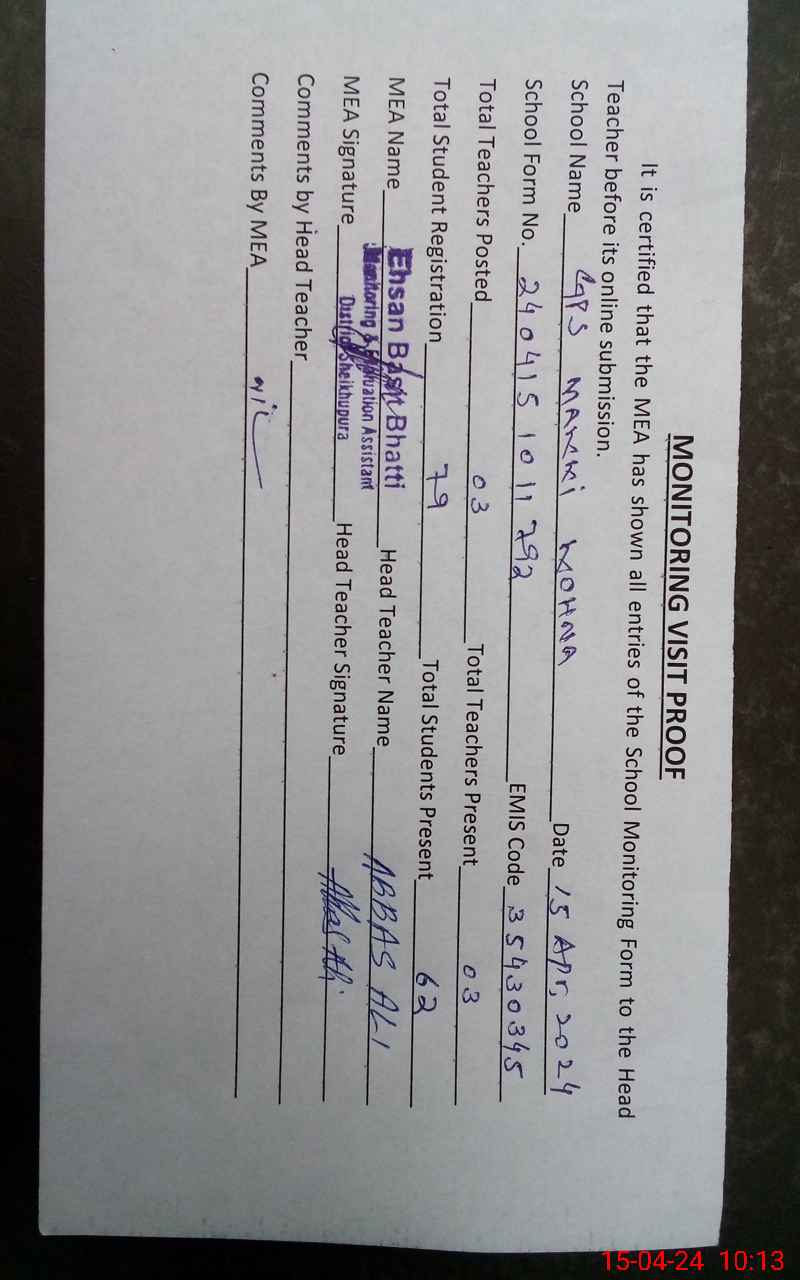 MONITORING VISIT PROOF
It is certified that the MEA has shown all entries of the School Monitoring Form to the Head
Teacher before its online submission.
School Name GPS MAMKi MOHNA Date 15 Apr, 2024
School Form No. 240415 1011 792 EMIS Code 35430345
Total Teachers Posted 03 Total Teachers Present 03
Total Student Registration 79 Total Students Present 62
MEA Name Ehsan Basit Bhatti Head Teacher Name ABBAS ALI
Monitoring & Evaluation Assistant
District Sheikhupura
MEA Signature Head Teacher Signature Abbas Ali
Comments by Head Teacher
Comments By MEA nil
15-04-24 10:13